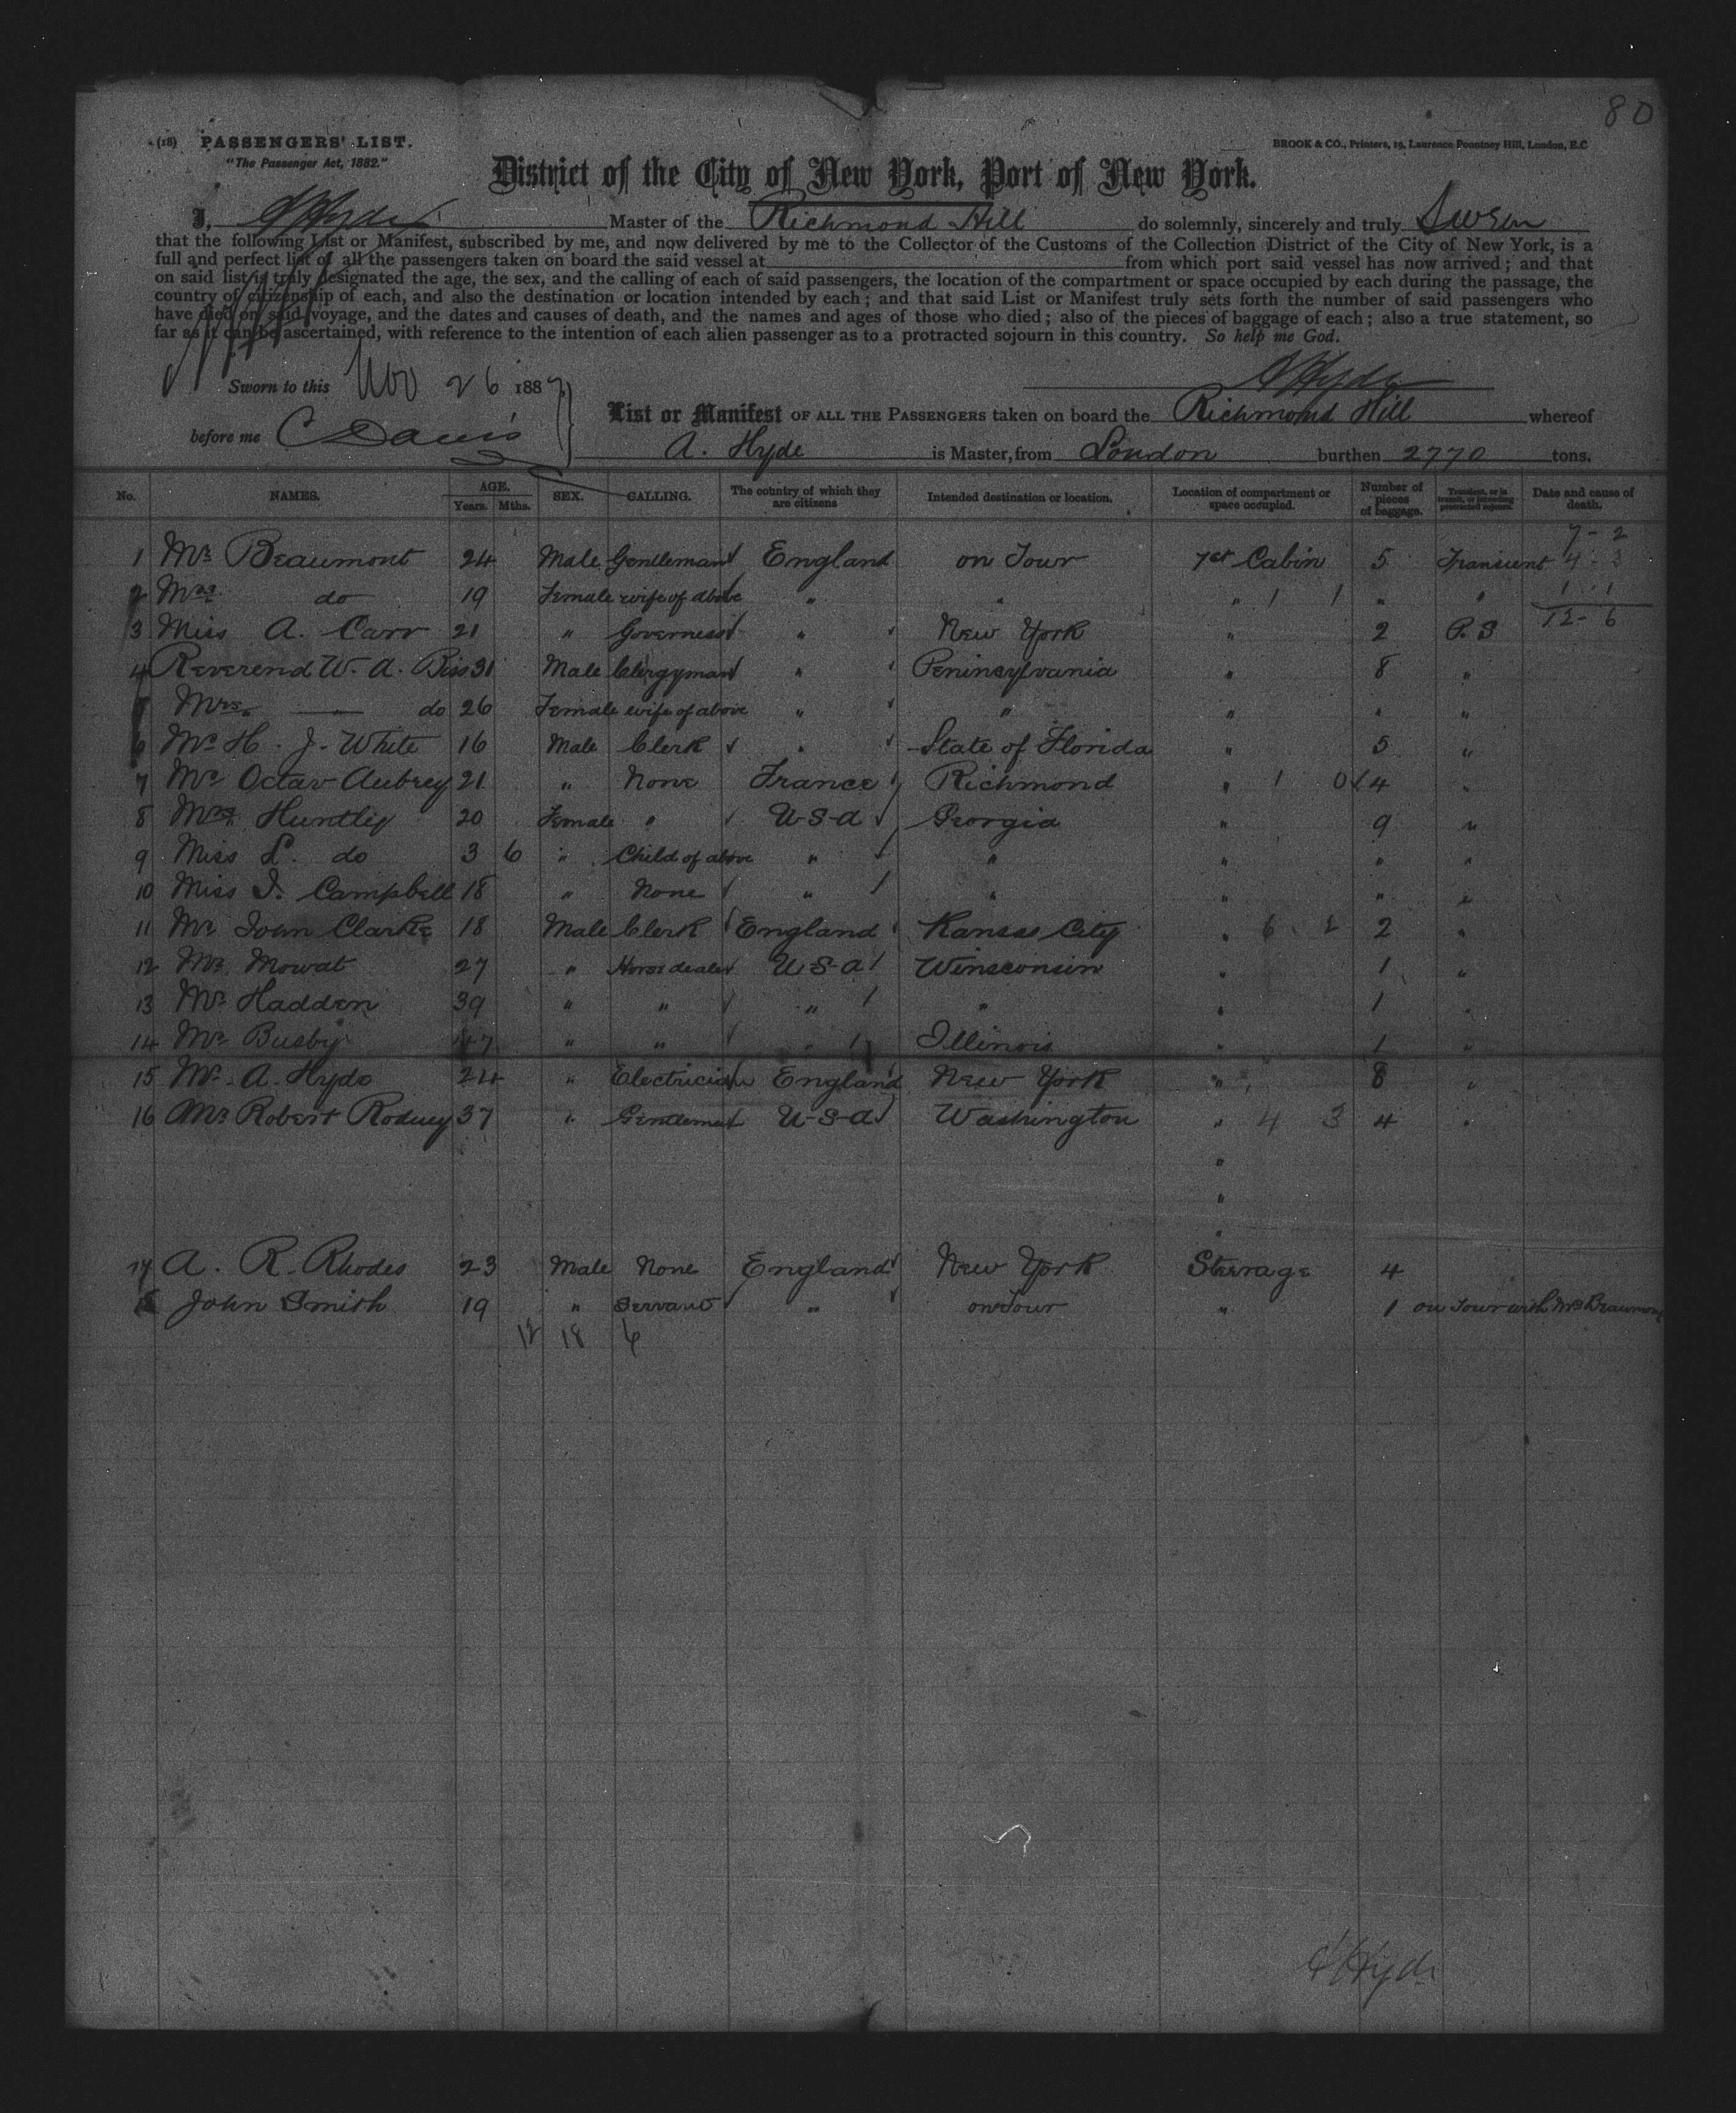 80
(18) PASSENGERS' LIST.
"The Passenger Act, 1882."
BROOK & CO., Printers, 19, Laurence Pountney Hill, London, E.C
District of the City of New York, Port of New York.
I, A Hyde Master of the Richmond Hill do solemnly, sincerely and truly Swear
that the following List or Manifest, subscribed by me, and now delivered by me to the Collector of the Customs of the Collection District of the City of New York, is a
full and perfect list of all the passengers taken on board the said vessel at from which port said vessel has now arrived; and that
on said list is truly designated the age, the sex, and the calling of each of said passengers, the location of the compartment or space occupied by each during the passage, the
country of citizenship of each, and also the destination or location intended by each; and that said List or Manifest truly sets forth the number of said passengers who
have died on said voyage, and the dates and causes of death, and the names and ages of those who died; also of the pieces of baggage of each; also a true statement, so
far as it can be ascertained, with reference to the intention of each alien passenger as to a protracted sojourn in this country. So help me God.
Sworn to this Nov 26 1887
A Hyde
before me C Davis
List or Manifest OF ALL THE PASSENGERS taken on board the Richmond Hill whereof
A. Hyde is Master, from London burthen 2770 tons.
No. NAMES. AGE. Years. Mths. SEX. CALLING. The country of which they are citizens Intended destination or location. Location of compartment or space occupied. Number of pieces of baggage. Transient, or in transit, or intending protracted sojourn. Date and cause of death.
7 - 2
1 Mr Beaumont 24 Male Gentleman England on Tour 1st Cabin 5 Transient 4 - 3
2 Mrs do 19 Female wife of above " " " 1 1 " " 1 1
3 Miss A. Carr 21 " Governess " New York " 2 P.S 12 - 6
4 Reverend W. A. Biss 31 Male Clergyman " Peninsylvania " 8 "
5 Mrs " do 26 Female wife of above " " " " "
6 Mr H. J. White 16 Male Clerk " State of Florida " 5 "
7 Mr Octav Aubrey 21 " None France Richmond " 1 0 4 "
8 Mrs Huntley 20 Female " U-S-A Georgia " 9 "
9 Miss L. do 3 6 " Child of above " " " " "
10 Miss I. Campbell 18 " None " " " " "
11 Mr John Clarke 18 Male Clerk England Kansas City " 6 2 2 "
12 Mr Mowat 27 " Horse dealer U-S-A Winsconsin " 1 "
13 Mr Hadden 39 " " " " " 1 "
14 Mr Busby 47 " " " Illinois " 1 "
15 Mr A. Hyde 24 " Electrician England New York " 8 "
16 Mr Robert Rodney 37 " Gentleman U-S-A Washington " 4 3 4 "
"
"
"
17 A. R. Rhodes 23 Male None England New York Steerage 4
18 John Smith 19 " Servant " on Tour " 1 on Tour with Mr Beaumont
12 18 6
A Hyde